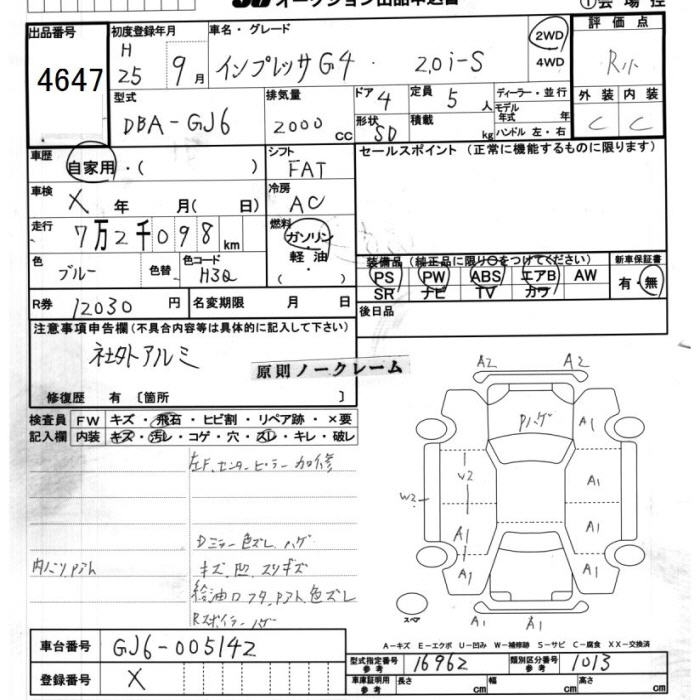 オークション出品申込書 ①会場控
出品番号 4647
初度登録年月 H 25年 9月
車名・グレード インプレッサG4 2.0i-S
2WD・4WD
評価点 R
外装 C 内装 C
型式 DBA-GJ6
排気量 2000 cc
ドア 4 形状 SD
定員 5 人 積載 kg
ディーラー・並行
モデル年式 年
ハンドル 左・右
車歴 自家用・( )
シフト FAT
セールスポイント (正常に機能するものに限ります)
車検 X 年 月( 日)
冷房 AC
走行 7万2千098 km
燃料 ガソリン・軽油 ( )
色 ブルー 色替 色コード H3Q
装備品 (純正品に限り○をつけてください)
PS PW ABS エアB AW
SR ナビ TV カワ
新車保証書 有・無
R券 12030 円 名変期限 月 日
後日品
注意事項申告欄 (不具合内容等は具体的に記入して下さい)
社外アルミ
原則ノークレーム
修復歴 有 〔箇所 〕
検査員記入欄
FW キズ・飛石・ヒビ割・リペア跡・×要
内装 キズ・汚レ・コゲ・穴・スレ・キレ・破レ
左F、センターピーラー 加修
Dミラー色ズレ、ハゲ
キズ、凹、スリキズ
給油口フタ、色ズレ
Rスポイラーハゲ
A2 A2
Pハゲ
A1
V2 A1
W2 A1
A1 A1
A1
A1 A1
スペア
A-キズ E-エクボ U-凹み W-補修跡 S-サビ C-腐食 XX-交換済
車台番号 GJ6-005142
登録番号 X
型式指定番号 参考 16962 類別区分番号 参考 1013
車庫証明用 参考 長さ cm 幅 cm 高さ cm